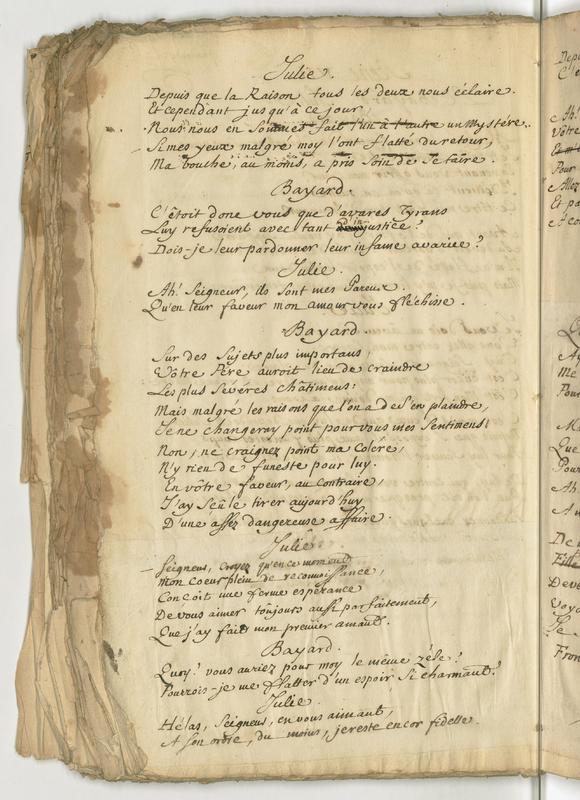 Julie.
Depuis que la Raison tous les deux nous éclaire.
Et cependant jusqu'à ce jour,
Nous nous en sommes fait l'un à l'autre un Mystére.
Si mes yeux malgre moy l'ont flatté du retour,
Ma bouche, au moins, a pris soin de se taire.
Bayard.
C'étoit donc vous que d'avares Tyrans
Luy refusoient avec tant d'injustice?
Dois-je leur pardonner leur infame avarice?
Julie.
Ah! Seigneur, ils sont mes Parens.
Qu'en leur faveur mon amour vous fléchisse.
Bayard.
Sur des Sujets plus importans,
Vôtre Pére auroit lieu de craindre
Les plus Sévéres châtimens:
Mais malgré les raisons que l'on a de s'en plaindre,
Je ne changeray point pour vous mes Sentimens!
Non, ne craignez point ma Colére,
N'y rien de funeste pour luy.
En vôtre faveur, au contraire,
J'ay Sçû le tirer aujourd'huy
D'une assez dangereuse affaire.
Julie.
Seigneur, croyez qu'en ce moment
Mon coeur plein de reconnoissance,
Conçoit une ferme espérance
De vous aimer toujours aussi parfaitement,
Que j'ay fait mon premier amant.
Bayard.
Quoy! vous auriez pour moy le même zéle?
Pourrois-je me flatter d'un espoir si charmant?
Julie.
Hélas, Seigneur, en vous aimant,
A son ordre, du moins, je reste encor fidelle.